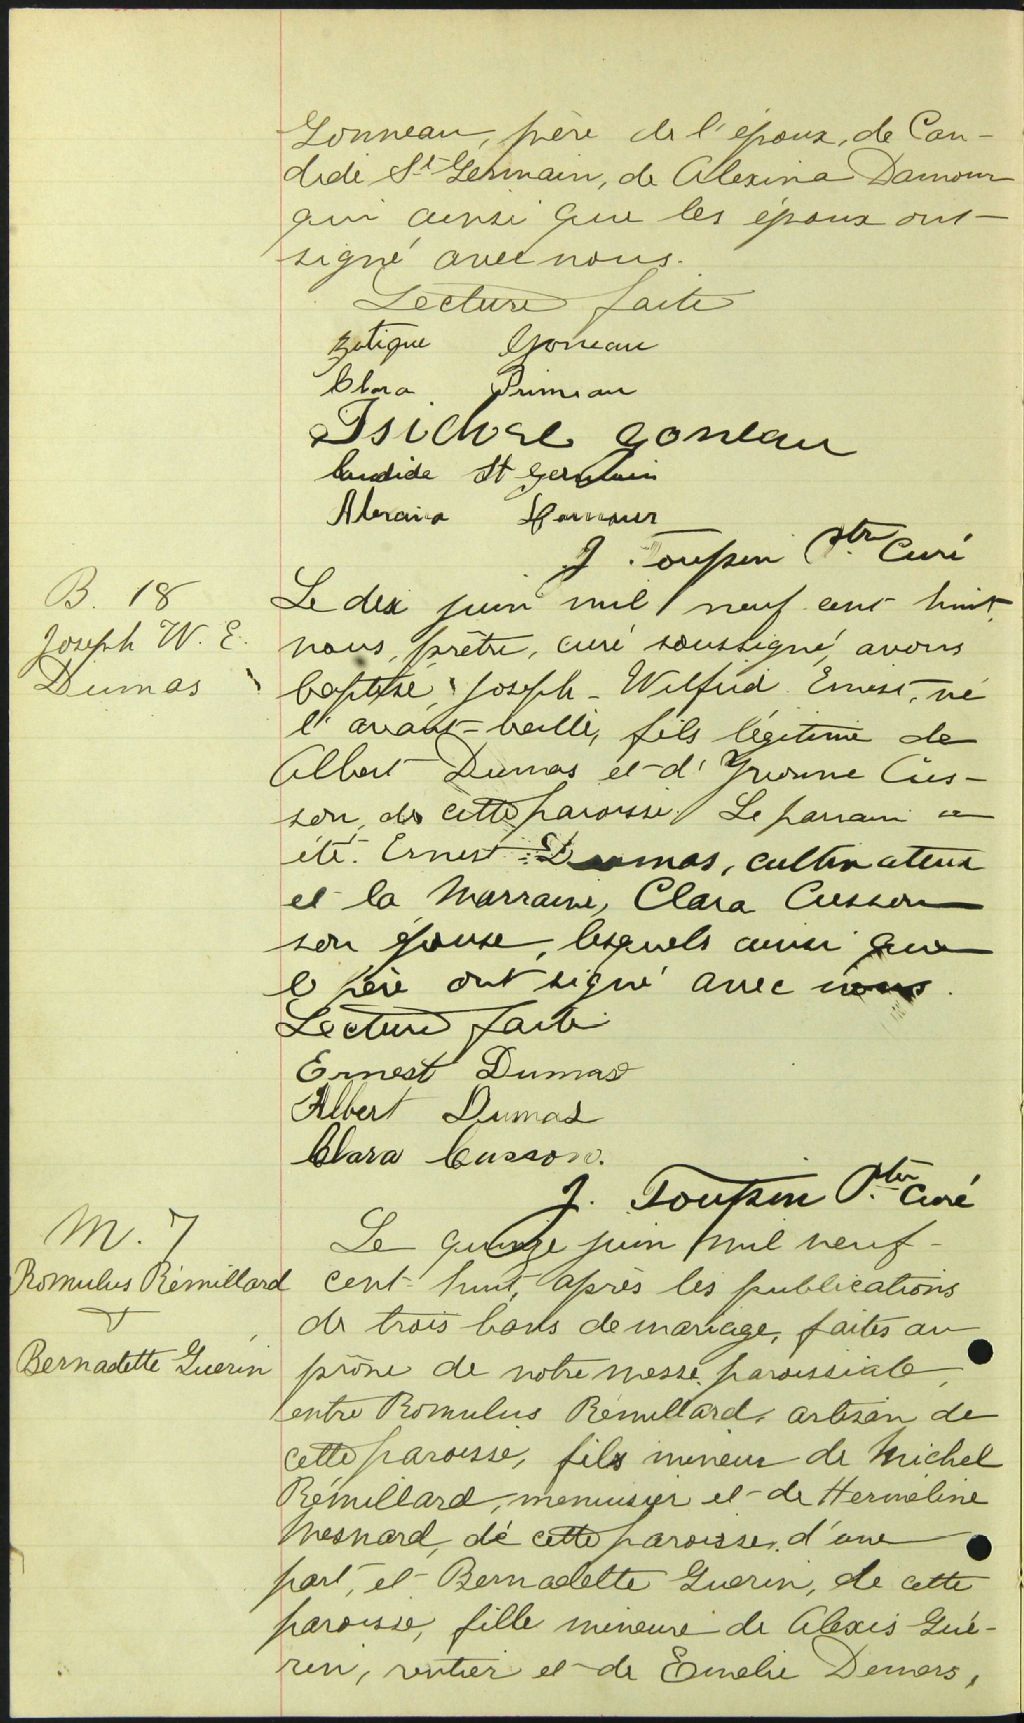 Gonneau, père de l'époux, de Can-
dide St-Germain, de Alexina Damour
qui ainsi que les époux ont
signé avec nous.
Lecture faite
Zotique Goneau
Clara Primeau
Isidore Goneau
Candide St Germain
Alexina Damour
J. Toupin Ptre Curé
B. 18
Joseph W. E.
Dumas
Le dix juin mil neuf cent huit,
nous, prêtre, curé soussigné, avons
baptisé, Joseph-Wilfrid Ernest, né
l'avant-veille, fils légitime de
Albert Dumas et d'Yvonne Cus-
son, de cette paroisse. Le parrain a
été: Ernest Dumas, cultivateur
et la Marraine, Clara Cusson
son épouse, lesquels ainsi que
le père ont signé avec nous.
Lecture faite
Ernest Dumas
Albert Dumas
Clara Cusson.
J. Toupin Ptre Curé
M. 7
Romulus Rémillard
&
Bernadette Guérin
Le quinze juin mil neuf-
cent huit, après les publications
de trois bans de mariage, faites au
prône de notre messe paroissiale,
entre Romulus Rémillard, artisan de
cette paroisse, fils mineur de Michel
Rémillard, menuisier et de Herméline
Mesnard, de cette paroisse, d'une
part, et Bernadette Guérin, de cette
paroisse, fille mineure de Alexis Gué-
rin, rentier et de Emélie Demers,